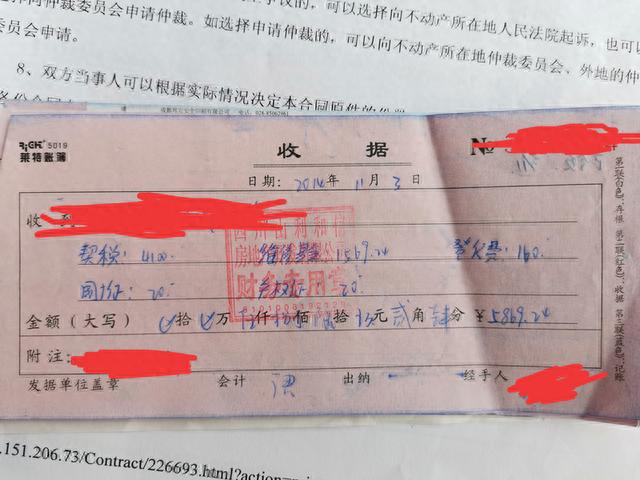 择向仲裁委员会申请仲裁。如选择申请仲裁的，可以选择向不动产所在地人民法院起诉，也可以
委员会申请。 可以向不动产所在地仲裁委员会、外地的仲
8、双方当事人可以根据实际情况决定本合同原件的份数
RiGH 5019
莱特账簿
收 据
№
日期： 2014 年 11 月 3 日
收 到
契税：4100. 维修基金 1569.24 登记费：160.
国证：20. 产权证： 20.
四川 利和信
房地 公
财务专用章
金额（大写） 拾 万 伍仟 捌佰 陆拾 玖元 贰角 肆分 ¥ 5869.24
附注：
发据单位盖章 会计 出纳 经手人
第一联（白色）：存根 第二联（红色）：收据 第三联（蓝色）：记账
.151.206.73/Contract/226693.html?action=